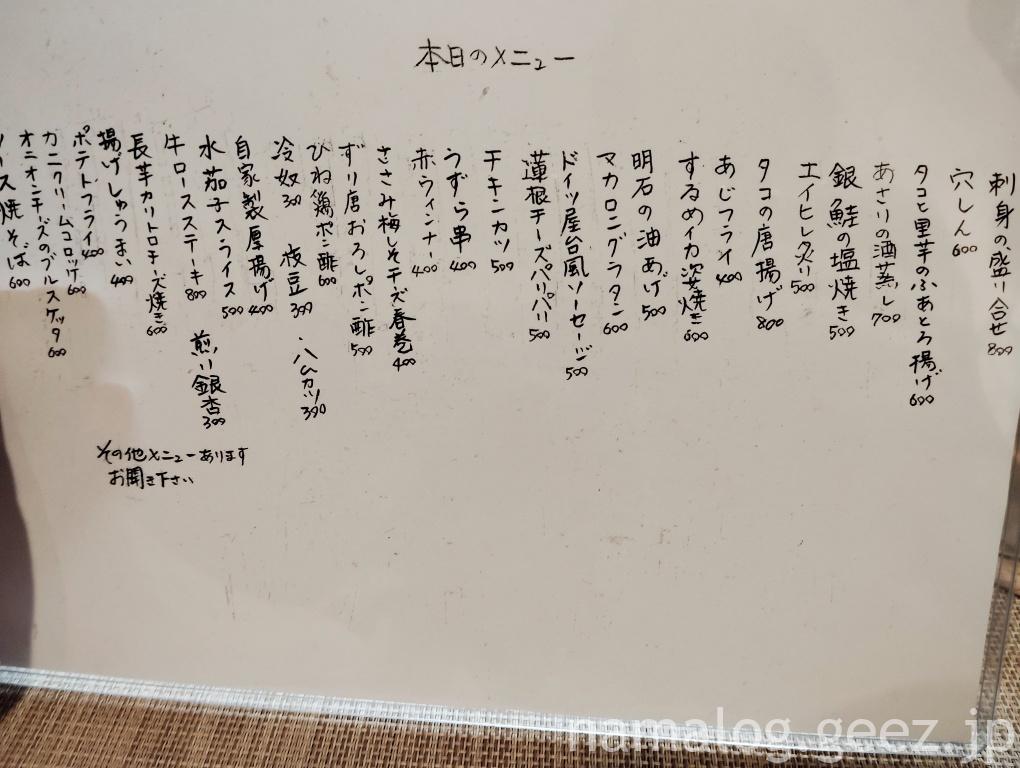 本日のメニュー
刺身の盛り合せ 800
穴しん 600
タコと里芋のふあとろ揚げ 600
あさりの酒蒸し 700
銀鮭の塩焼き 500
エイヒレ炙り 500
タコの唐揚げ 800
あじフライ 400
するめイカ姿焼き 600
明石の油あげ 500
マカロニグラタン 600
ドイツ屋台風ソーセージ 500
蓮根チーズパリパリ 500
チキンカツ 500
うずら串 400
赤ウィンナー 400
ささみ梅しそチーズ春巻 400
ずり唐おろしポン酢 500
ひね鶏ポン酢 600
冷奴 300 枝豆 300 ・ハムカツ 390
自家製厚揚げ 400
水茄子スライス 500
牛ロースステーキ 800 煎り銀杏 300
長芋カリトロチーズ焼き 600
揚げしゅうまい 400
ポテトフライ 400
カニクリームコロッケ 600
オニオンチーズのブルスケッタ 600
ソース焼そば 600
その他メニューあります
お聞き下さい
namalog.geez.jp